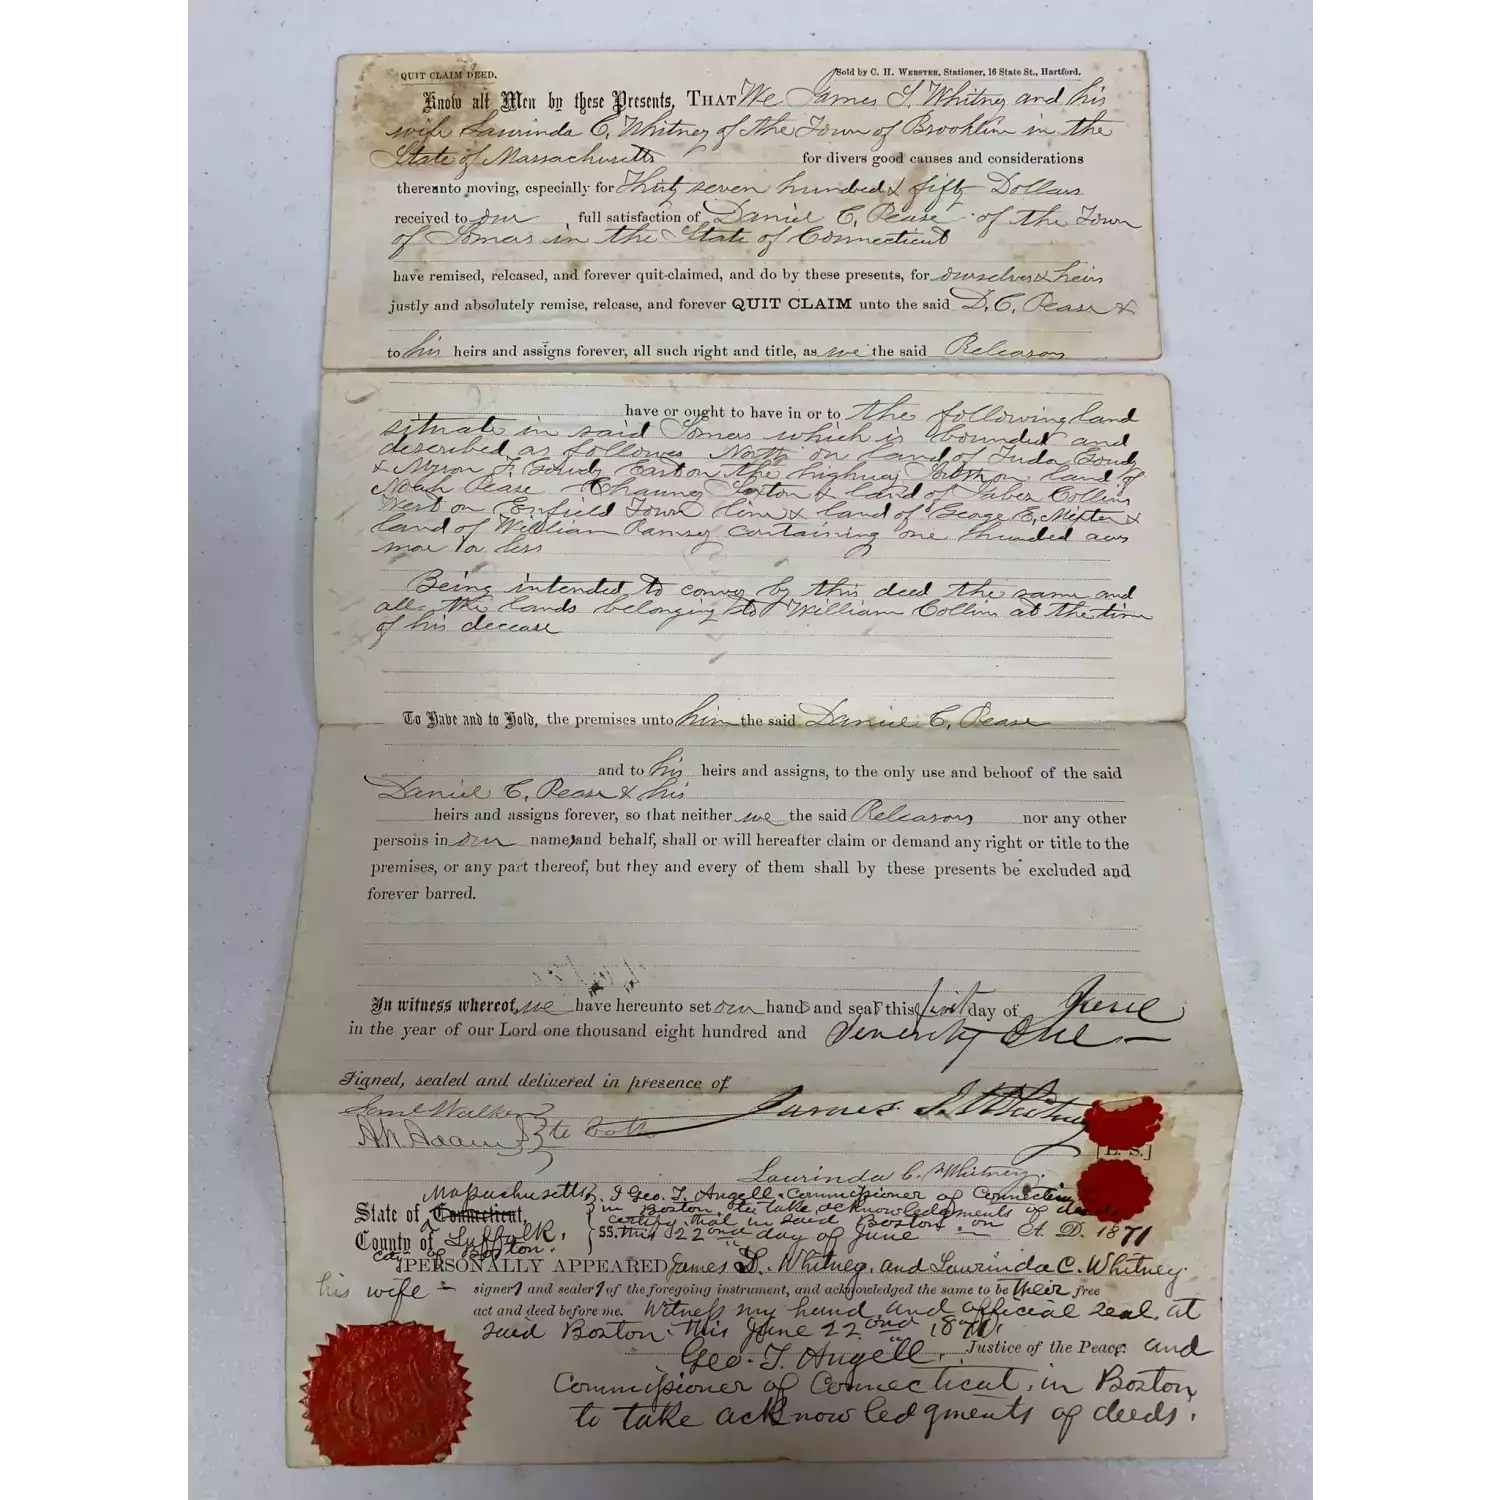 QUIT CLAIM DEED.
Sold by C. H. WEBSTER, Stationer, 16 State St., Hartford.
Know all Men by these Presents, THAT We James S. Whitney and his
wife Laurinda C. Whitney of the Town of Brooklin in the
State of Massachusetts for divers good causes and considerations
thereunto moving, especially for Thirty seven hundred & fifty Dollars
received to our full satisfaction of Daniel C. Pease of the Town
of Somers in the State of Connecticut
have remised, released, and forever quit-claimed, and do by these presents, for ourselves & heirs
justly and absolutely remise, release, and forever QUIT CLAIM unto the said D. C. Pease &
to his heirs and assigns forever, all such right and title, as we the said Releasors
have or ought to have in or to the following land
situate in said Somers which is bounded and
described as follows North on land of Tudor Gowdy
& Myron F. Gowdy East on the highway South on land of
Noah Pease Chauncy Sexton & land of Jabez Collins
West on Enfield Town line & land of George E. Mixter &
land of William Ramsey containing one hundred acres
more or less
Being intended to convey by this deed the same and
all the lands belonging to William Collins at the time
of his decease
To Have and to Hold, the premises unto him the said Daniel C. Pease
and to his heirs and assigns, to the only use and behoof of the said
Daniel C. Pease & his
heirs and assigns forever, so that neither we the said Releasors nor any other
persons in our names and behalf, shall or will hereafter claim or demand any right or title to the
premises, or any part thereof, but they and every of them shall by these presents be excluded and
forever barred.
In witness whereof, we have hereunto set our hands and seals this first day of June
in the year of our Lord one thousand eight hundred and Seventy One
Signed, sealed and delivered in presence of
Saml Walker
A N Adams } to both
James S. Whitney
[L. S.]
Laurinda C. Whitney.
Massachusetts
State of Connecticut,
County of Suffolk.
City of Boston.
ss. I Geo. T. Angell. Commissioner of Connecticut
in Boston, to take acknowledgments of deeds
certify that in said Boston, on
this 22nd day of June A. D. 1871
PERSONALLY APPEARED James S. Whitney, and Laurinda C. Whitney.
his wife signers and sealers of the foregoing instrument, and acknowledged the same to be their free
act and deed before me. Witness my hand and official seal, at
said Boston. this June 22nd 1871.
Geo. T. Angell. Justice of the Peace. and
Commissioner of Connecticut, in Boston,
to take acknowledgments of deeds.